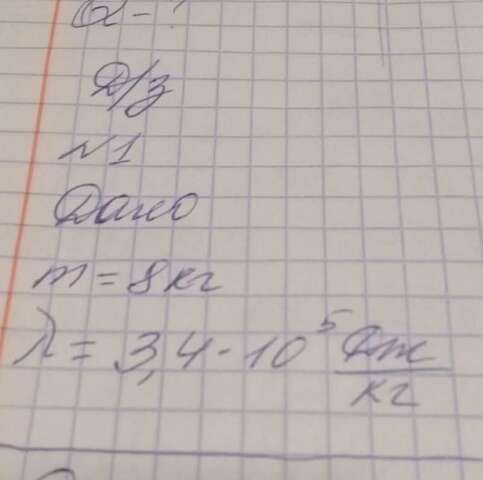 Q-?
Д/з
№1
Дано
m = 8 кг
λ = 3,4 · 10⁵ Дж/кг